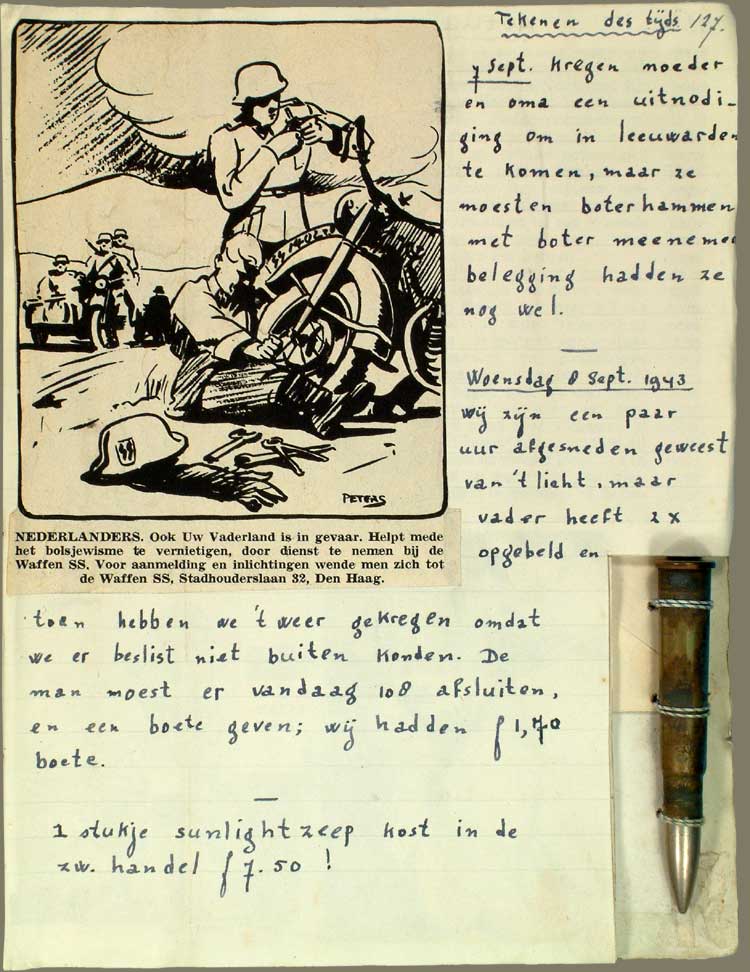 Tekenen des tijds 127.
7 Sept. kregen moeder
en oma een uitnodi-
ging om in leeuwarden
te komen, maar ze
moesten boterhammen
met boter meenemen
belegging hadden ze
nog wel.
Woensdag 8 Sept. 1943
wij zijn een paar
uur afgesneden geweest
van 't licht, maar
vader heeft 2x
opgebeld en
toen hebben we 't weer gekregen omdat
we er beslist niet buiten konden. De
man moest er vandaag 108 afsluiten,
en een boete geven; wij hadden f 1,70
boete.
1 stukje sunlight zeep kost in de
zw. handel f 7.50 !
PETERS
NEDERLANDERS. Ook Uw Vaderland is in gevaar. Helpt mede
het bolsjewisme te vernietigen, door dienst te nemen bij de
Waffen SS. Voor aanmelding en inlichtingen wende men zich tot
de Waffen SS, Stadhouderslaan 32, Den Haag.